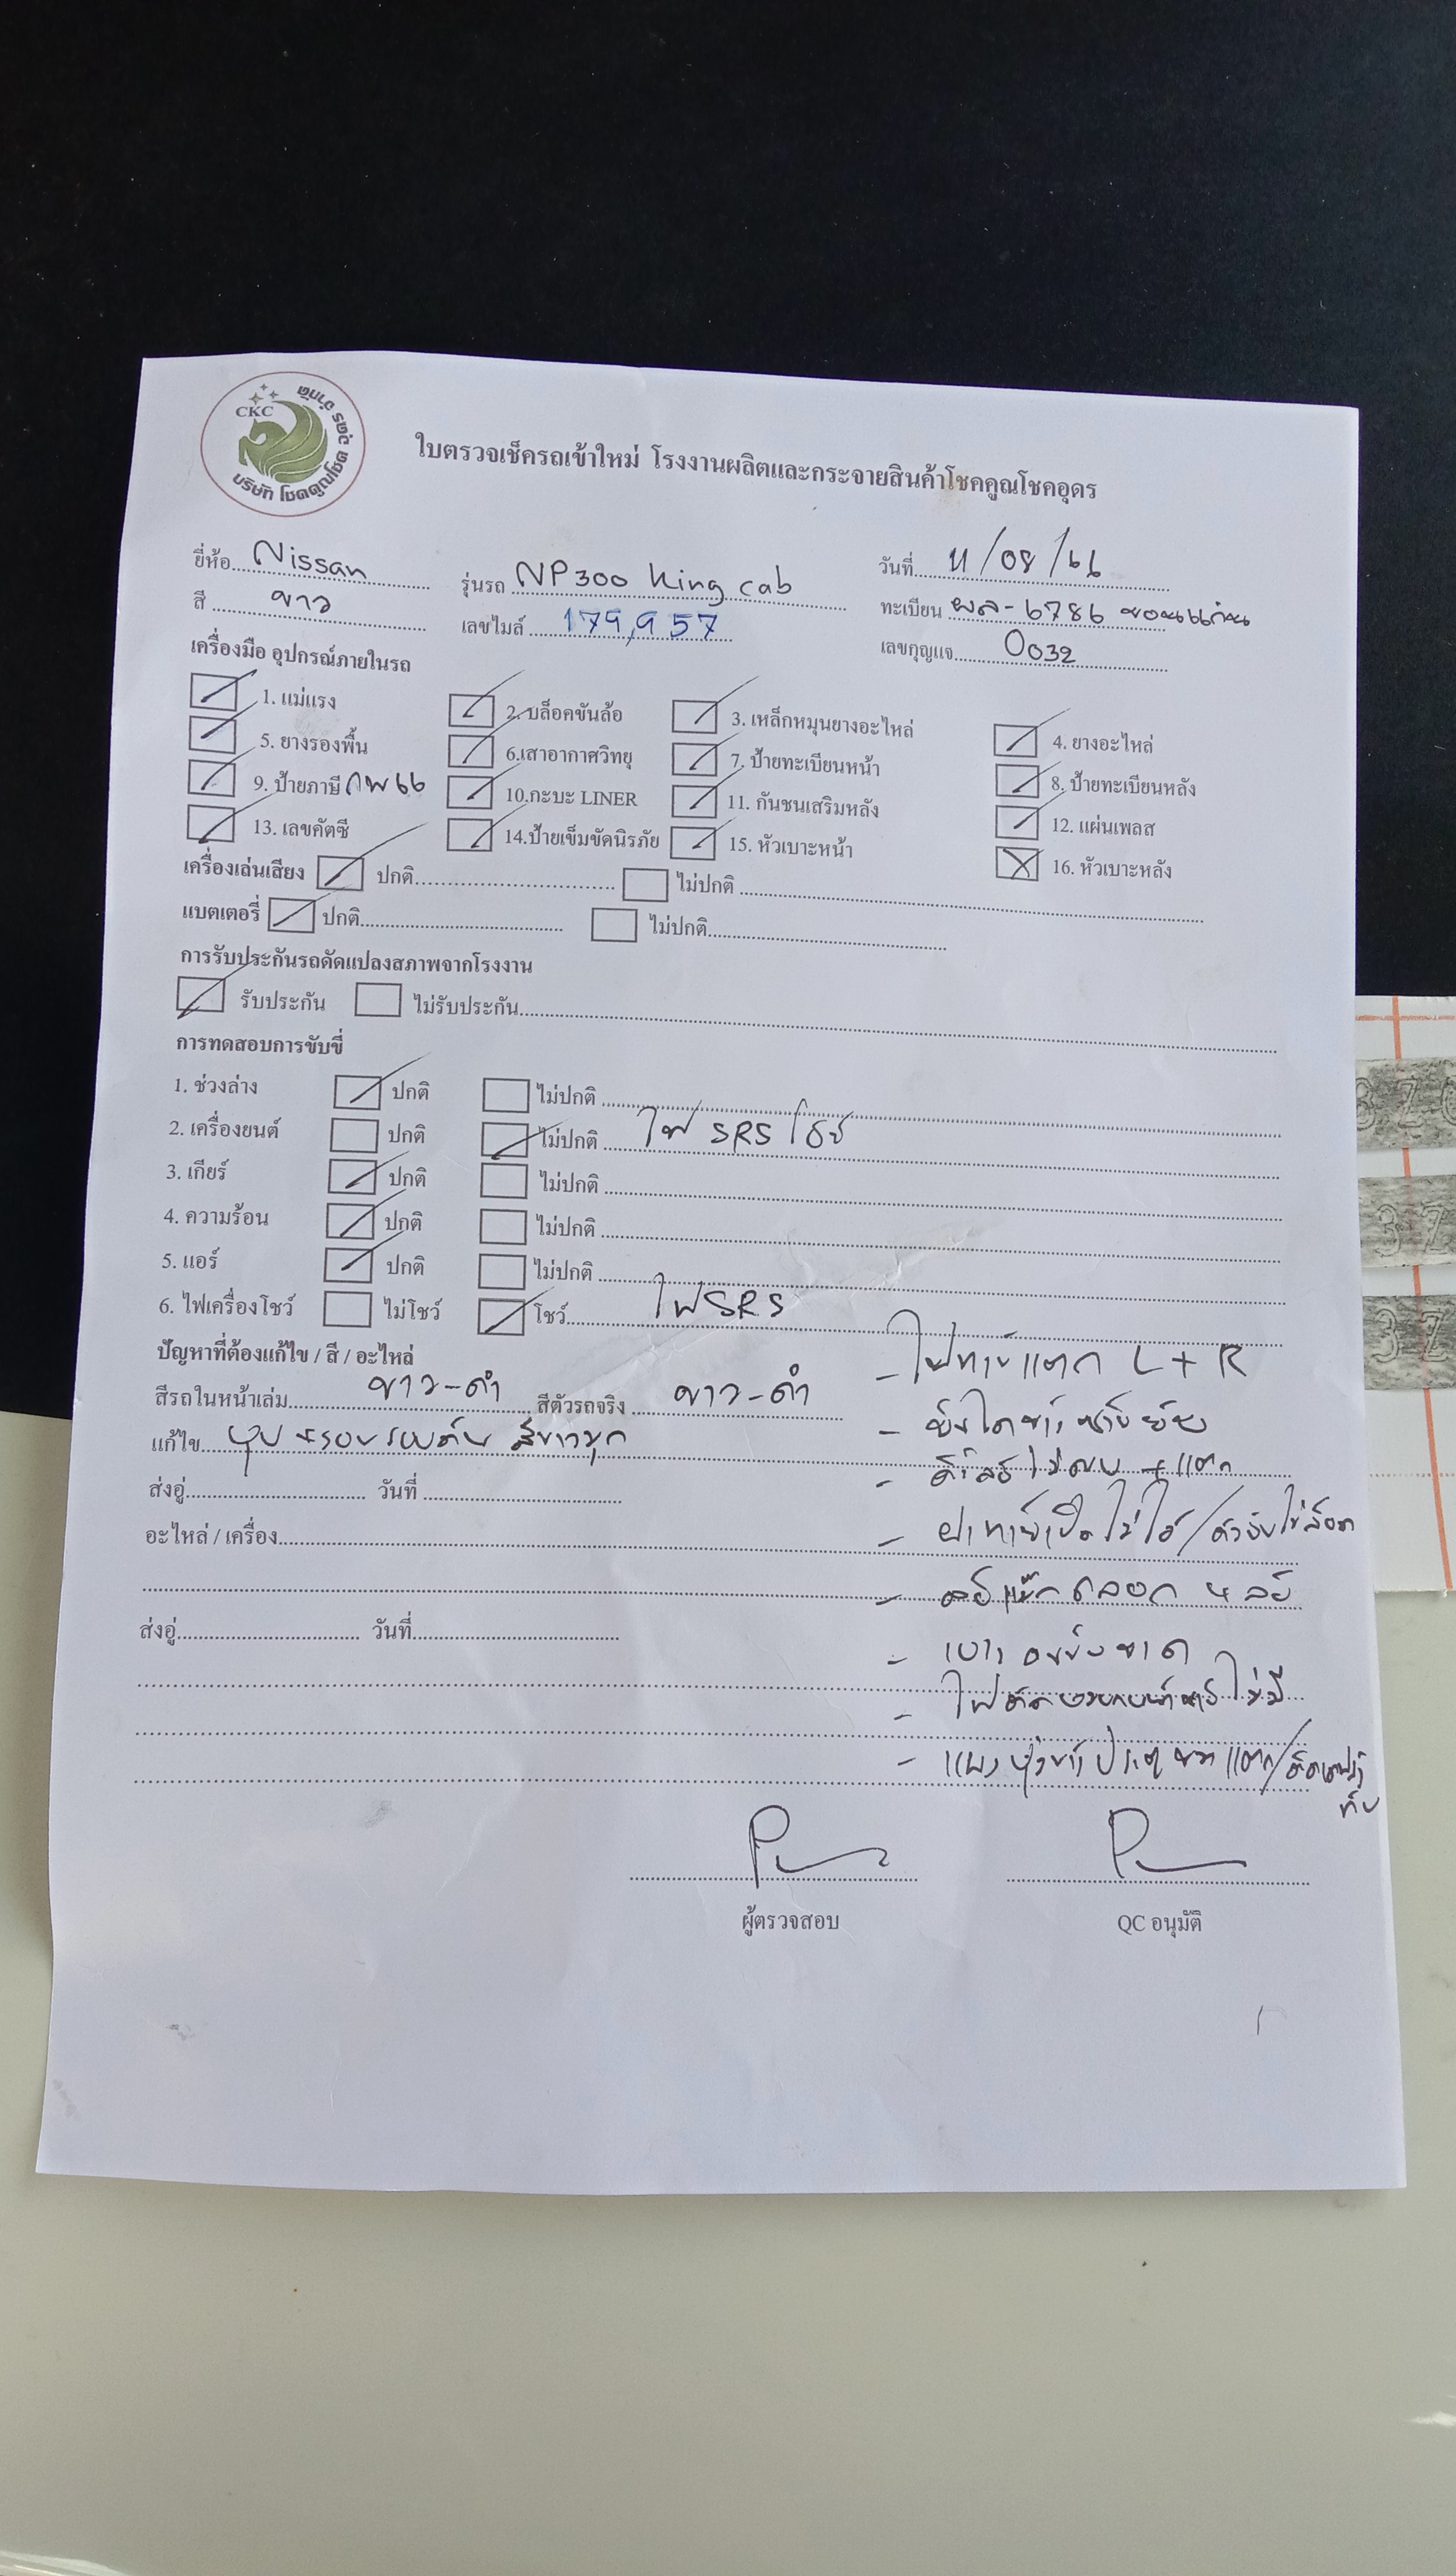 CKC
บริษัท โชคคูณโชค อุดร จำกัด
ใบตรวจเช็ครถเข้าใหม่ โรงงานผลิตและกระจายสินค้าโชคคูณโชคอุดร
ยี่ห้อ Nissan รุ่นรถ NP300 King cab วันที่ 11/08/66
สี ขาว เลขไมล์ 179,957 ทะเบียน ผล-6786 ขอนแก่น
เครื่องมือ อุปกรณ์ภายในรถ เลขกุญแจ 0032
1. แม่แรง 2. บล็อคขันล้อ 3. เหล็กหมุนยางอะไหล่ 4. ยางอะไหล่
5. ยางรองพื้น 6.เสาอากาศวิทยุ 7. ป้ายทะเบียนหน้า 8. ป้ายทะเบียนหลัง
9. ป้ายภาษี กพ 66 10.กะบะ LINER 11. กันชนเสริมหลัง 12. แผ่นเพลส
13. เลขคัตซี 14.ป้ายเข็มขัดนิรภัย 15. หัวเบาะหน้า 16. หัวเบาะหลัง
เครื่องเล่นเสียง ปกติ ไม่ปกติ
แบตเตอรี่ ปกติ ไม่ปกติ
การรับประกันรถดัดแปลงสภาพจากโรงงาน
รับประกัน ไม่รับประกัน
การทดสอบการขับขี่
1. ช่วงล่าง ปกติ ไม่ปกติ
2. เครื่องยนต์ ปกติ ไม่ปกติ ไฟ SRS โชว์
3. เกียร์ ปกติ ไม่ปกติ
4. ความร้อน ปกติ ไม่ปกติ
5. แอร์ ปกติ ไม่ปกติ
6. ไฟเครื่องโชว์ ไม่โชว์ โชว์ ไฟ SRS
ปัญหาที่ต้องแก้ไข / สี / อะไหล่
- ไฟท้ายแตก L + R
สีรถในหน้าเล่ม ขาว-ดำ สีตัวรถจริง ขาว-ดำ
แก้ไข รอบคัน สีขาวมุก
ส่งอู่ วันที่
- ฝาท้ายเปิดไม่ได้/
อะไหล่ / เครื่อง
ส่งอู่ วันที่
- เบาะ ขาด
- ไฟ ไม่มี
- แผง ประตู แตก/
ผู้ตรวจสอบ QC อนุมัติ